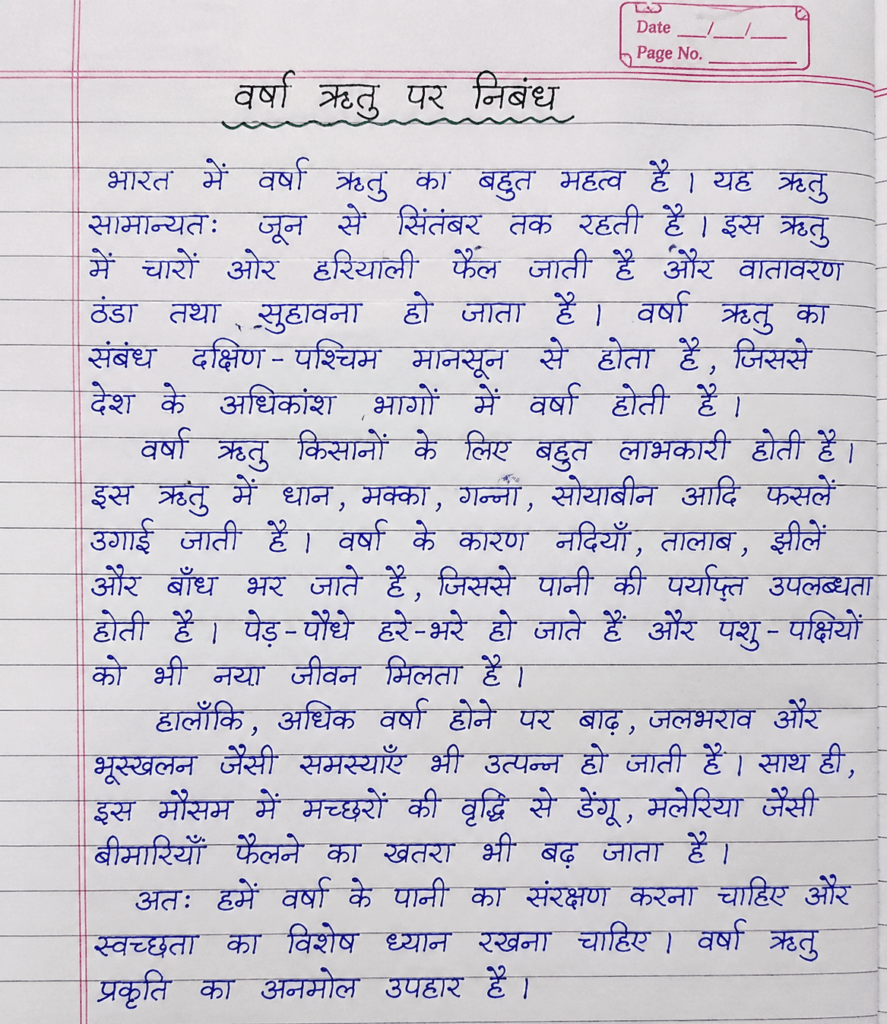 Date __/__/__
Page No. ________
वर्षा ऋतु पर निबंध
भारत में वर्षा ऋतु का बहुत महत्व है। यह ऋतु
सामान्यतः जून से सिंतंबर तक रहती है। इस ऋतु
में चारों ओर हरियाली फैल जाती है और वातावरण
ठंडा तथा सुहावना हो जाता है। वर्षा ऋतु का
संबंध दक्षिण-पश्चिम मानसून से होता है, जिससे
देश के अधिकांश भागों में वर्षा होती है।
वर्षा ऋतु किसानों के लिए बहुत लाभकारी होती है।
इस ऋतु में धान, मक्का, गन्ना, सोयाबीन आदि फसलें
उगाई जाती है। वर्षा के कारण नदियाँ, तालाब, झीलें
और बाँध भर जाते है, जिससे पानी की पर्याप्त उपलब्धता
होती है। पेड़-पौधे हरे-भरे हो जाते हैं और पशु-पक्षियों
को भी नया जीवन मिलता है।
हालाँकि, अधिक वर्षा होने पर बाढ़, जलभराव और
भूस्खलन जैसी समस्याएँ भी उत्पन्न हो जाती हैं। साथ ही,
इस मौसम में मच्छरों की वृद्धि से डेंगू, मलेरिया जैसी
बीमारियाँ फैलने का खतरा भी बढ़ जाता है।
अतः हमें वर्षा के पानी का संरक्षण करना चाहिए और
स्वच्छता का विशेष ध्यान रखना चाहिए। वर्षा ऋतु
प्रकृति का अनमोल उपहार है।